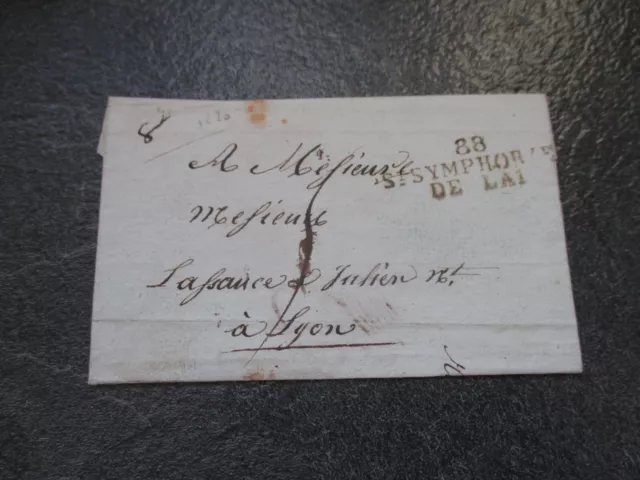 8
88
St SYMPHORIE
DE LAI
A Messieurs
Messieurs
Lassauce & Julien Nt.
à Lyon